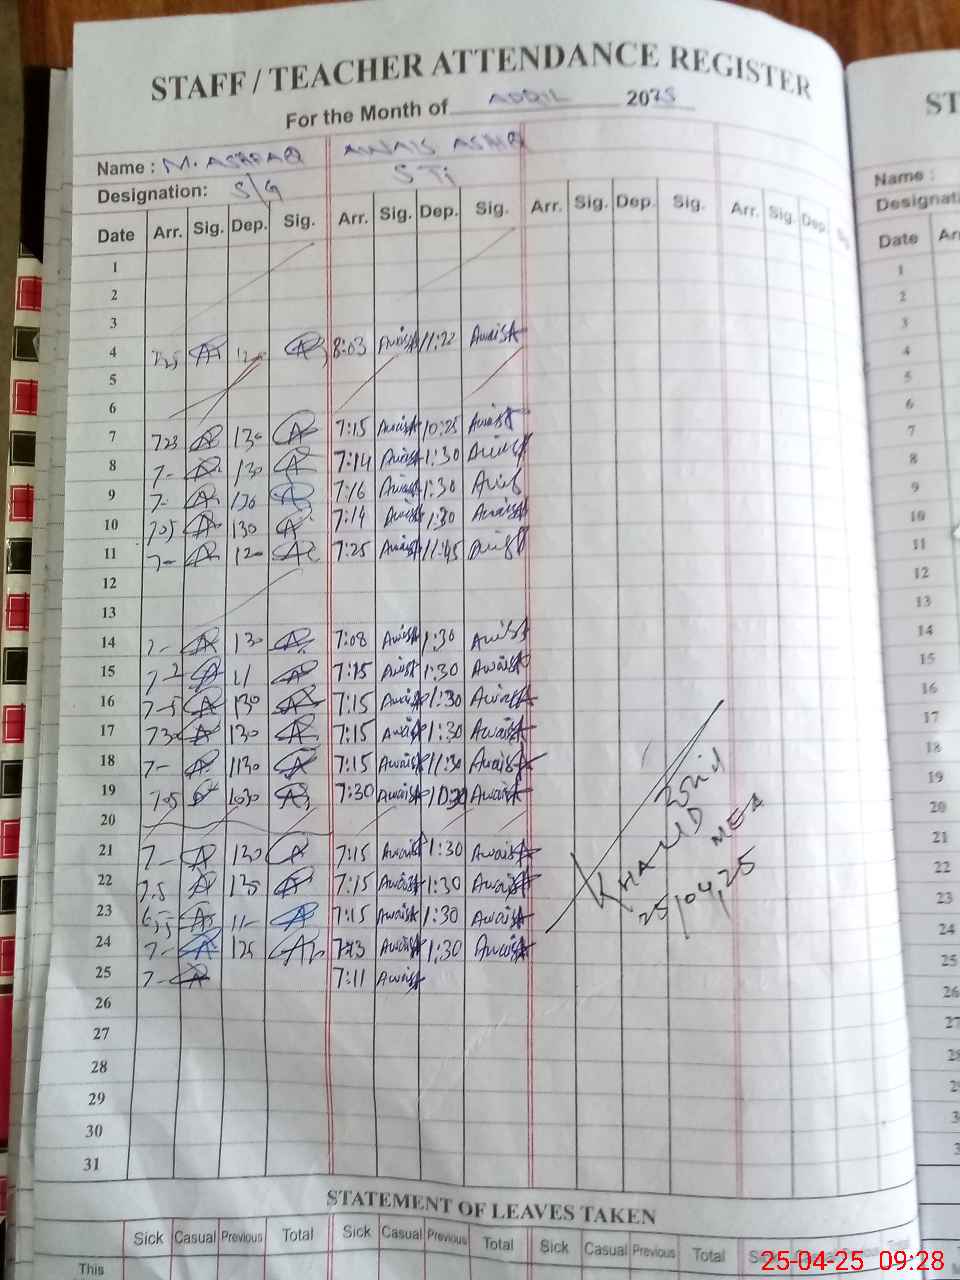 STAFF / TEACHER ATTENDANCE REGISTER
For the Month of APRIL 2025
Name : M. ASHFAQ AWAIS ASHR
Designation: S/G STi
Date Arr. Sig. Dep. Sig. Arr. Sig. Dep. Sig. Arr. Sig. Dep. Sig. Arr. Sig. Dep.
1
2
3
4 725 8:03 Awais 11:22 Awais
5
6
7 723 130 7:15 Awais 10:25 Awais
8 7- 130 7:14 Awais 1:30 Awais
9 7- 130 7:16 Awais 1:30 Awais
10 705 130 7:14 Awais 1:30 Awais
11 7- 120 7:25 Awais 11:45 Awais
12
13
14 7- 130 7:08 Awais 1:30 Awais
15 11 7:15 Awais 1:30 Awais
16 7-5 130 7:15 Awais 1:30 Awais
17 730 130 7:15 Awais 1:30 Awais
18 7- 1130 7:15 Awais 11:30 Awais
19 705 1030 7:30 Awais 10:30 Awais
20
21 7- 130 7:15 Awais 1:30 Awais
22 7.5 135 7:15 Awais 1:30 Awais
23 11- 7:15 Awais 1:30 Awais
24 7- 125 7:13 Awais 1:30 Awais
25 7- 7:11 Awais
26
27
28
29
30
31
KHALID
MEA
25/04/25
STATEMENT OF LEAVES TAKEN
Sick Casual Previous Total Sick Casual Previous Total Sick Casual Previous Total
This
ST
Name :
Designati
Date Arr
1
2
3
4
5
6
7
8
9
10
11
12
13
14
15
16
17
18
19
20
21
22
23
24
25
26
27
28
25-04-25 09:28